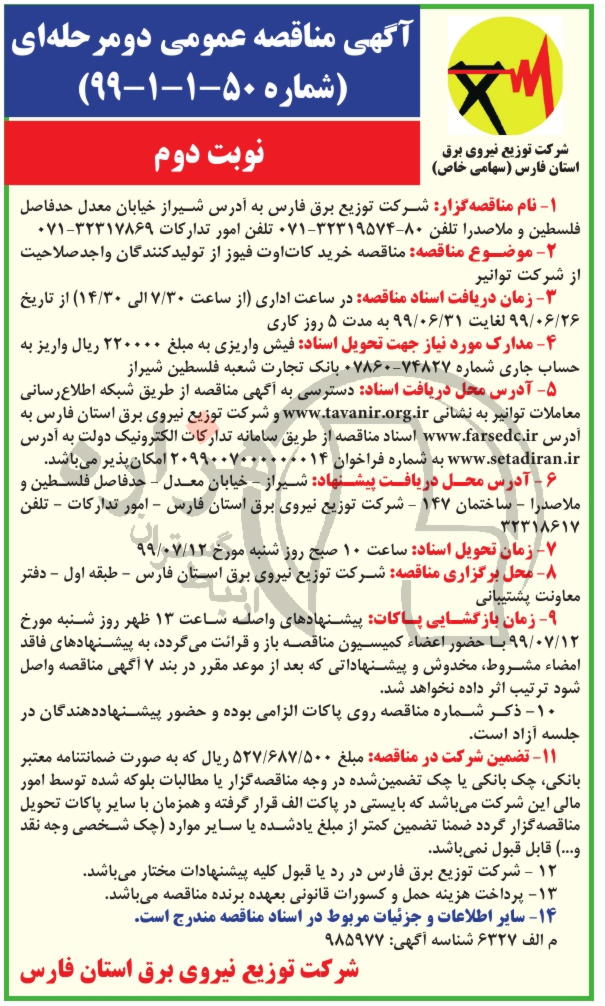 آگهی مناقصه عمومی دومرحله‌ای
(شماره ۵۰-۱-۱-۹۹)
نوبت دوم
شرکت توزیع نیروی برق
استان فارس (سهامی خاص)
۱- نام مناقصه‌گزار: شرکت توزیع برق فارس به آدرس شیراز خیابان معدل حدفاصل
فلسطین و ملاصدرا تلفن ۸۰-۳۲۳۱۹۵۷۴-۰۷۱ تلفن امور تدارکات ۳۲۳۱۷۸۶۹-۰۷۱
۲- موضوع مناقصه: مناقصه خرید کات‌اوت فیوز از تولیدکنندگان واجدصلاحیت
از شرکت توانیر
۳- زمان دریافت اسناد مناقصه: در ساعت اداری (از ساعت ۷/۳۰ الی ۱۴/۳۰) از تاریخ
۹۹/۰۶/۲۶ لغایت ۹۹/۰۶/۳۱ به مدت ۵ روز کاری
۴- مدارک مورد نیاز جهت تحویل اسناد: فیش واریزی به مبلغ ۲۲۰۰۰۰ ریال واریز به
حساب جاری شماره ۷۴۸۲۷-۰۷۸۶۰ بانک تجارت شعبه فلسطین شیراز
۵- آدرس محل دریافت اسناد: دسترسی به آگهی مناقصه از طریق شبکه اطلاع‌رسانی
معاملات توانیر به نشانی www.tavanir.org.ir و شرکت توزیع نیروی برق استان فارس به
آدرس www.farsedc.ir اسناد مناقصه از طریق سامانه تدارکات الکترونیک دولت به آدرس
www.setadiran.ir به شماره فراخوان ۲۰۹۹۰۰۷۰۰۰۰۰۰۰۱۴ امکان‌پذیر می‌باشد.
۶- آدرس محل دریافت پیشنهاد: شیراز - خیابان معدل - حدفاصل فلسطین و
ملاصدرا - ساختمان ۱۴۷ - شرکت توزیع نیروی برق استان فارس - امور تدارکات - تلفن
۳۲۳۱۸۶۱۷
۷- زمان تحویل اسناد: ساعت ۱۰ صبح روز شنبه مورخ ۹۹/۰۷/۱۲
۸- محل برگزاری مناقصه: شرکت توزیع نیروی برق استان فارس - طبقه اول - دفتر
معاونت پشتیبانی
۹- زمان بازگشایی پاکات: پیشنهادهای واصله ساعت ۱۳ ظهر روز شنبه مورخ
۹۹/۰۷/۱۲ با حضور اعضاء کمیسیون مناقصه باز و قرائت می‌گردد، به پیشنهادهای فاقد
امضاء مشروط، مخدوش و پیشنهاداتی که بعد از موعد مقرر در بند ۷ آگهی مناقصه واصل
شود ترتیب اثر داده نخواهد شد.
۱۰- ذکر شماره مناقصه روی پاکات الزامی بوده و حضور پیشنهاددهندگان در
جلسه آزاد است.
۱۱- تضمین شرکت در مناقصه: مبلغ ۵۲۷/۶۸۷/۵۰۰ ریال که به صورت ضمانتنامه معتبر
بانکی، چک بانکی یا چک تضمین‌شده در وجه مناقصه‌گزار یا مطالبات بلوکه شده توسط امور
مالی این شرکت می‌باشد که بایستی در پاکت الف قرار گرفته و همزمان با سایر پاکات تحویل
مناقصه‌گزار گردد ضمنا تضمین کمتر از مبلغ یادشده یا سایر موارد (چک شخصی وجه نقد
و...) قابل قبول نمی‌باشد.
۱۲ - شرکت توزیع برق فارس در رد یا قبول کلیه پیشنهادات مختار می‌باشد.
۱۳- پرداخت هزینه حمل و کسورات قانونی بعهده برنده مناقصه می‌باشد.
۱۴- سایر اطلاعات و جزئیات مربوط در اسناد مناقصه مندرج است.
م الف ۶۳۲۷ شناسه آگهی: ۹۸۵۹۷۷
شرکت توزیع نیروی برق استان فارس